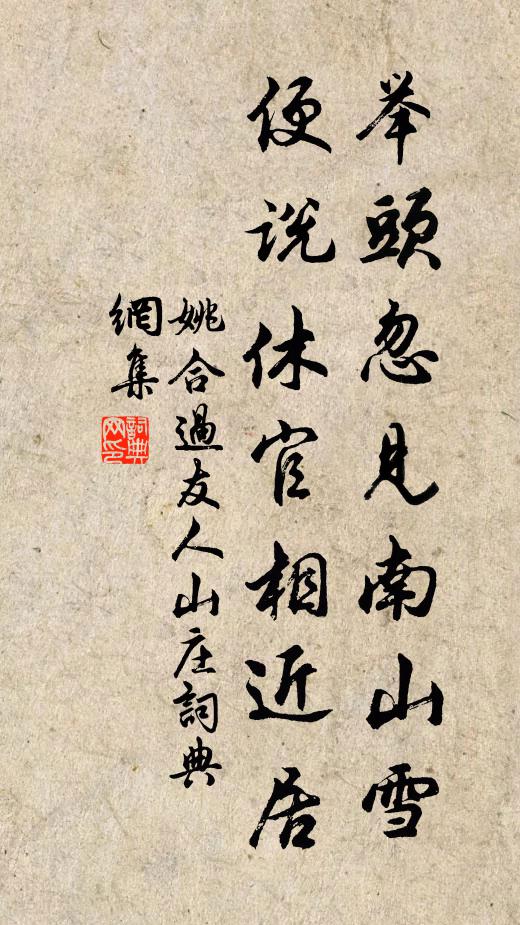 举頭忽见南山雪
便说休官相近居
姚合過友人山庄詞典
網集
詞典网印